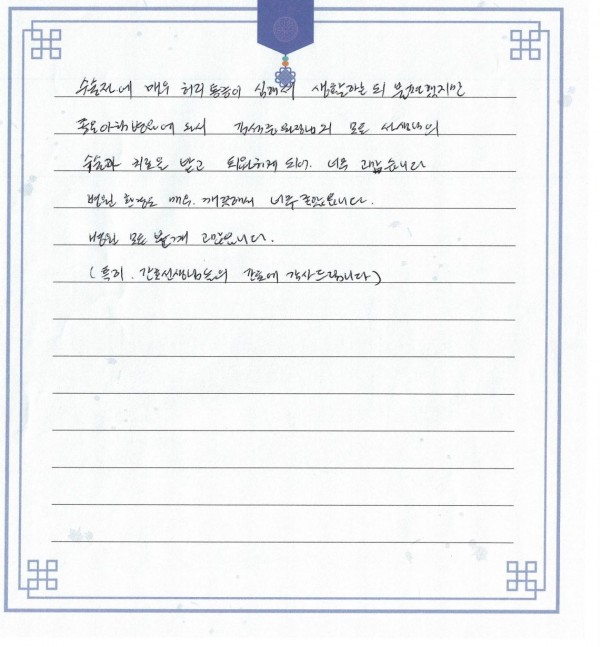 수술전에 매우 허리 통증이 심해서 생활하는 되 불편했지만
병원에 와서 원장님외 모든 선생님의
수술과 치료을 받고 퇴원하게 되어. 너무 고맙습니다
병원 환경도 매우. 깨끗해서 너무 좋았읍니다.
병원 모든 분게 고맙읍니다.
(특히. 간호선생님들의 간호에 감사드립니다)